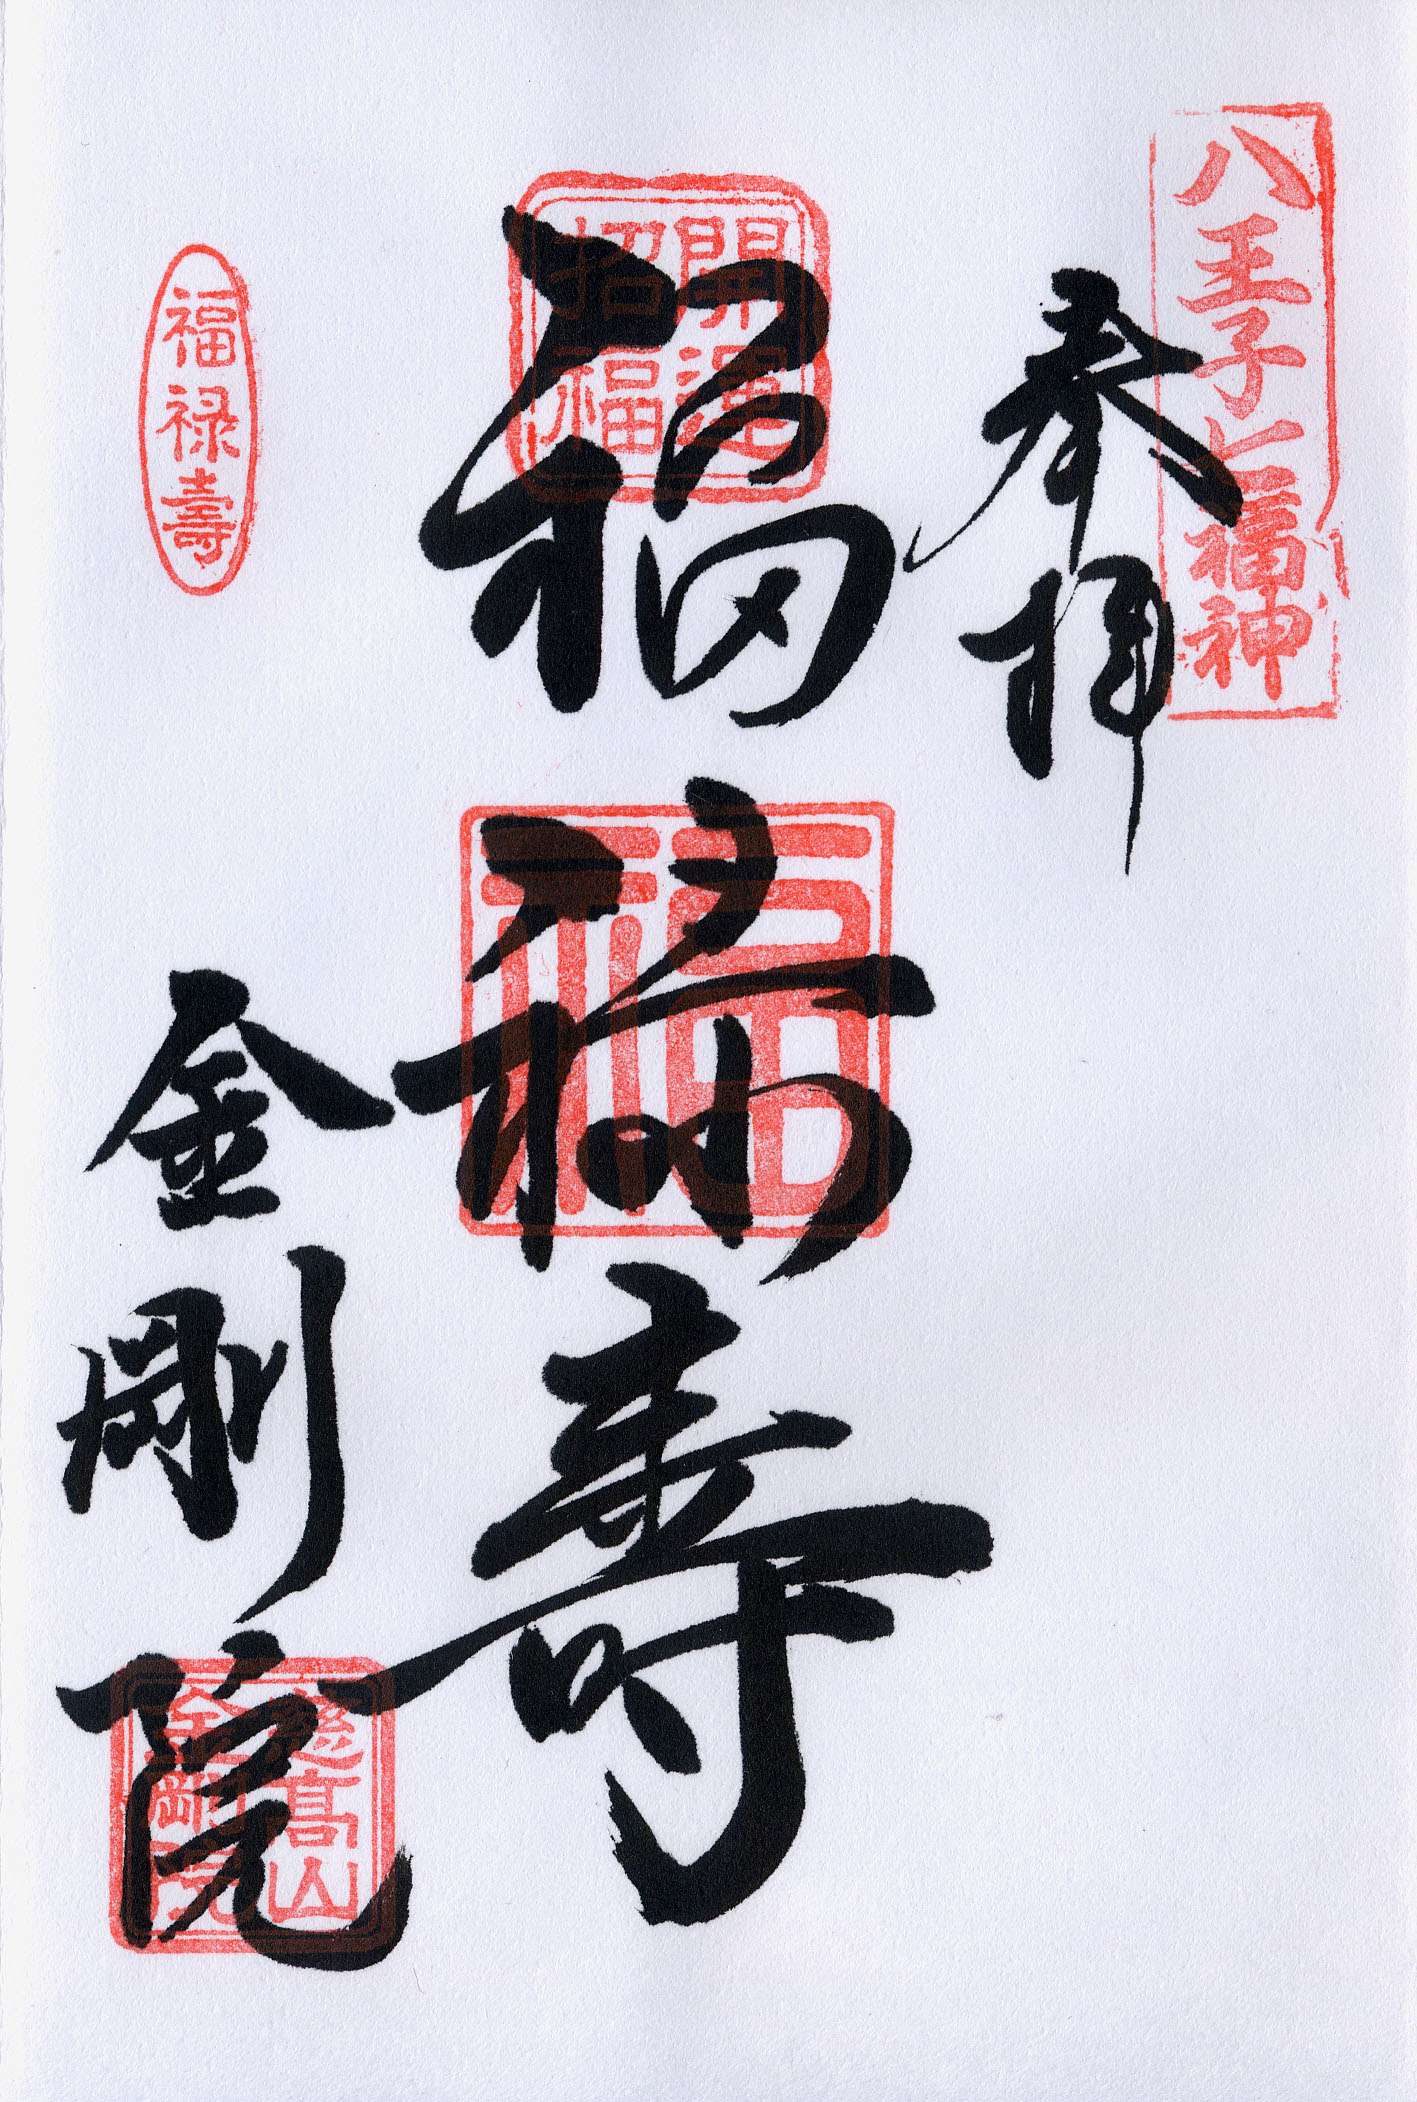 八王子七福神
奉拝
開運
招福
福禄寿
福
福禄壽
金剛院
慈高山
金剛院